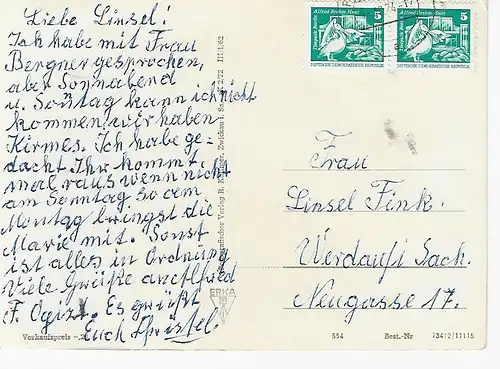 Liebe Linsel!
Ich habe mit Frau
Bergner gesprochen,
aber Sonnabend
u. Sonntag kann ich nicht
kommen wir haben
Kirmes. Ich habe ge-
dacht Ihr kommt
mal raus wenn nicht
am Sonntag so am
Montag bringst die
Marie mit. Sonst
ist alles in Ordnung
Viele Grüße
Es grüßt
Euch Christel.
Verkaufspreis
III/1/62
ERIKA
5
Alfred Brehm Haus
Tierpark Berlin
DEUTSCHE DEMOKRATISCHE REPUBLIK
5
Alfred Brehm Haus
Tierpark Berlin
DEUTSCHE DEMOKRATISCHE REPUBLIK
Frau
Linsel Fink.
Werdau/i Sach.
Neugasse 17.
554
Best.-Nr
13412/11115